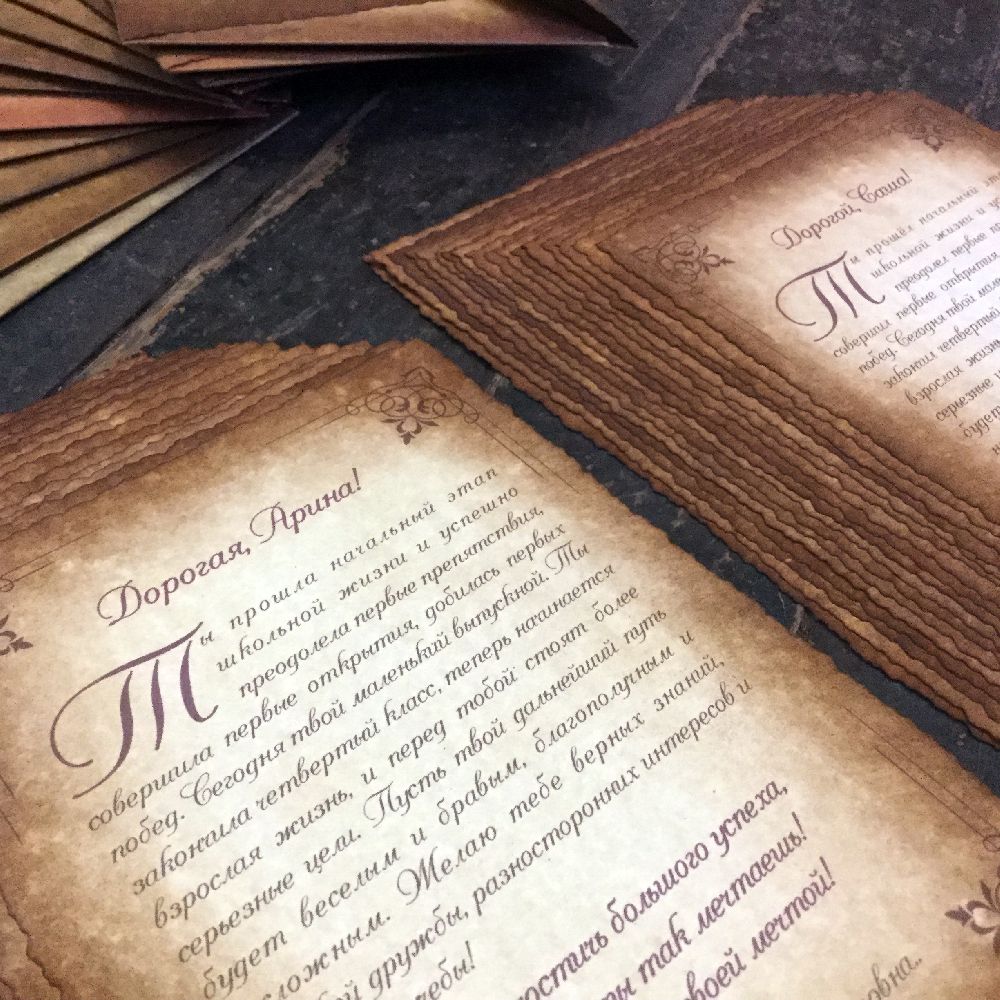 Дорогая, Арина!
Ты прошла начальный этап
школьной жизни и успешно
преодолела первые препятствия,
совершила первые открытия, добилась первых
побед. Сегодня твой маленький выпускной. Ты
закончила четвертый класс, теперь начинается
взрослая жизнь, и перед тобой стоят более
серьезные цели. Пусть твой дальнейший путь
будет веселым и бравым, благополучным и
сложным. Желаю тебе верных знаний,
дружбы, разносторонних интересов и
большого успеха,
так мечтаешь!
мечтой!
Дорогой, Саша!
Ты прошёл начальный
школьной жизни и
преодолел первые
совершил первые открытия
побед. Сегодня твой
закончил четвертый
взрослая
серьезные
будет